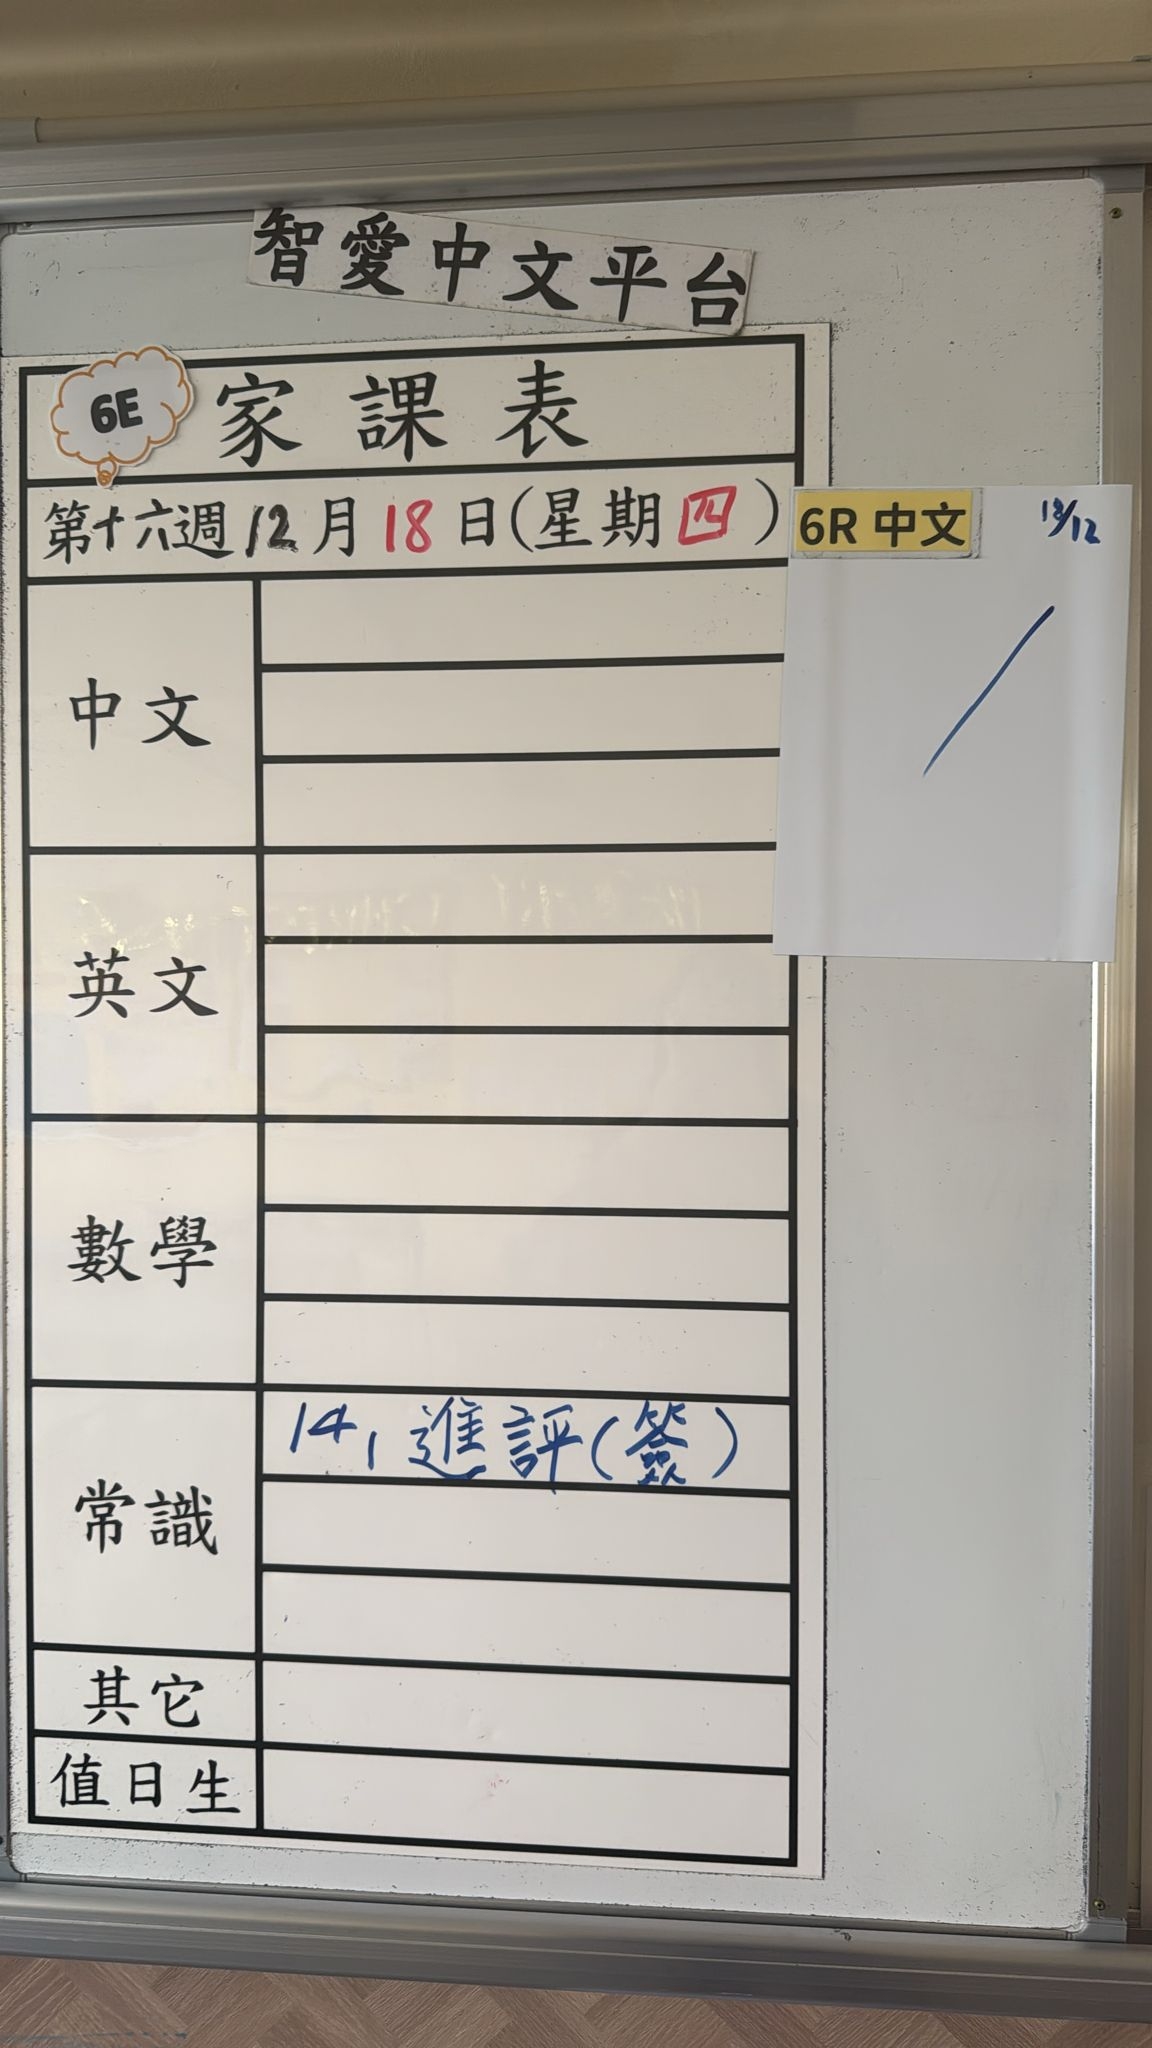 智愛中文平台
6E 家課表
第十六週12月18日(星期四)
6R 中文 18/12
中文
英文
數學
常識 14, 進評(簽)
其它
值日生